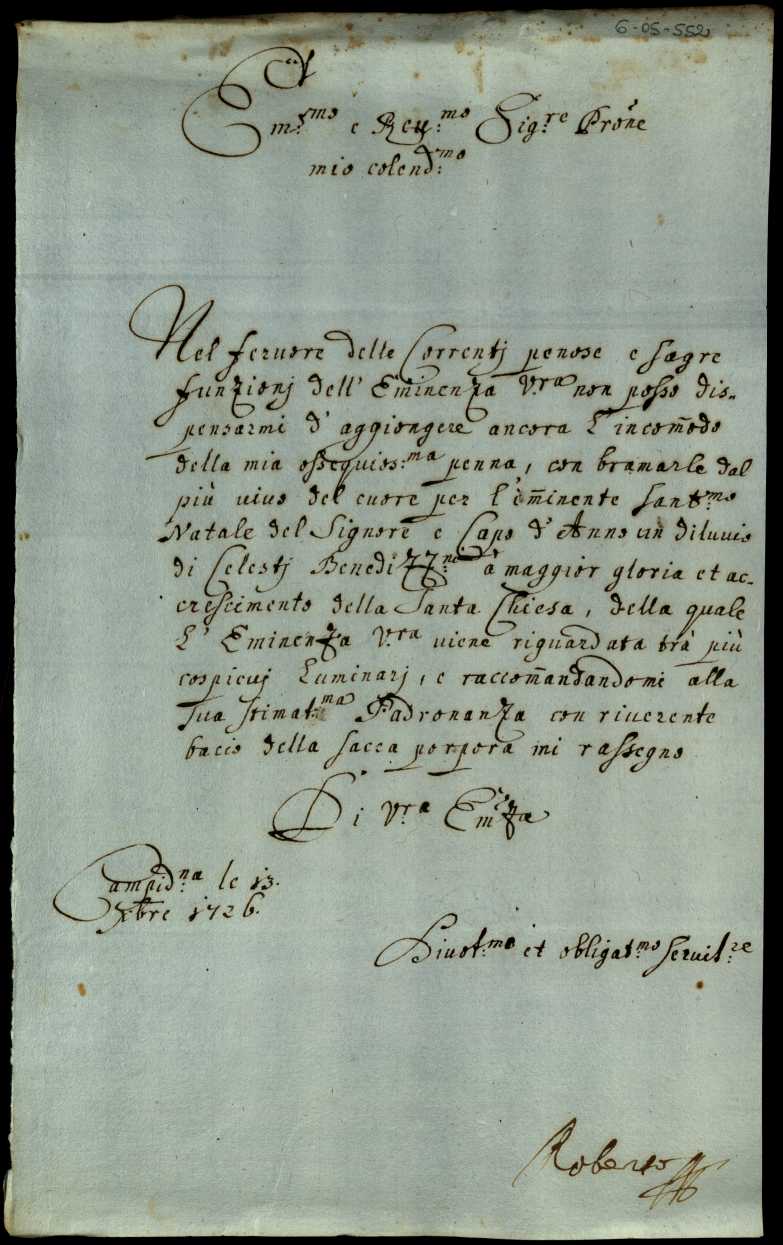 6-05-552
Em.mo e Reu.mo Sig.re Prone
mio colend:mo
Nel feruore delle Correntj penose e sagre
funzionj dell' Eminenza V.ra non posso dis-
pensarmi d' aggiongere ancora l' incom̃odo
della mia ossequios:ma penna, con bramarle dal
più uiuo del cuore per l' em̃inente Sant:mo
Natale del Signore e Capo d' Anno un diluuio
di Celestj Benedizz:ni à maggior gloria et ac-
crescimento della Santa Chiesa, della quale
l' Eminenza V.ra uiene riguardata trà più
cospicuj Luminarj, e raccom̃andandomi alla
Sua stimat:ma Padronanza con riuerente
bacio della sacra porpora mi rassegno
Di V.ra Em.za
Campid:na le 13.
Xbre 1726.
Diuot:mo et obligat:mo seruit:re
Roberto